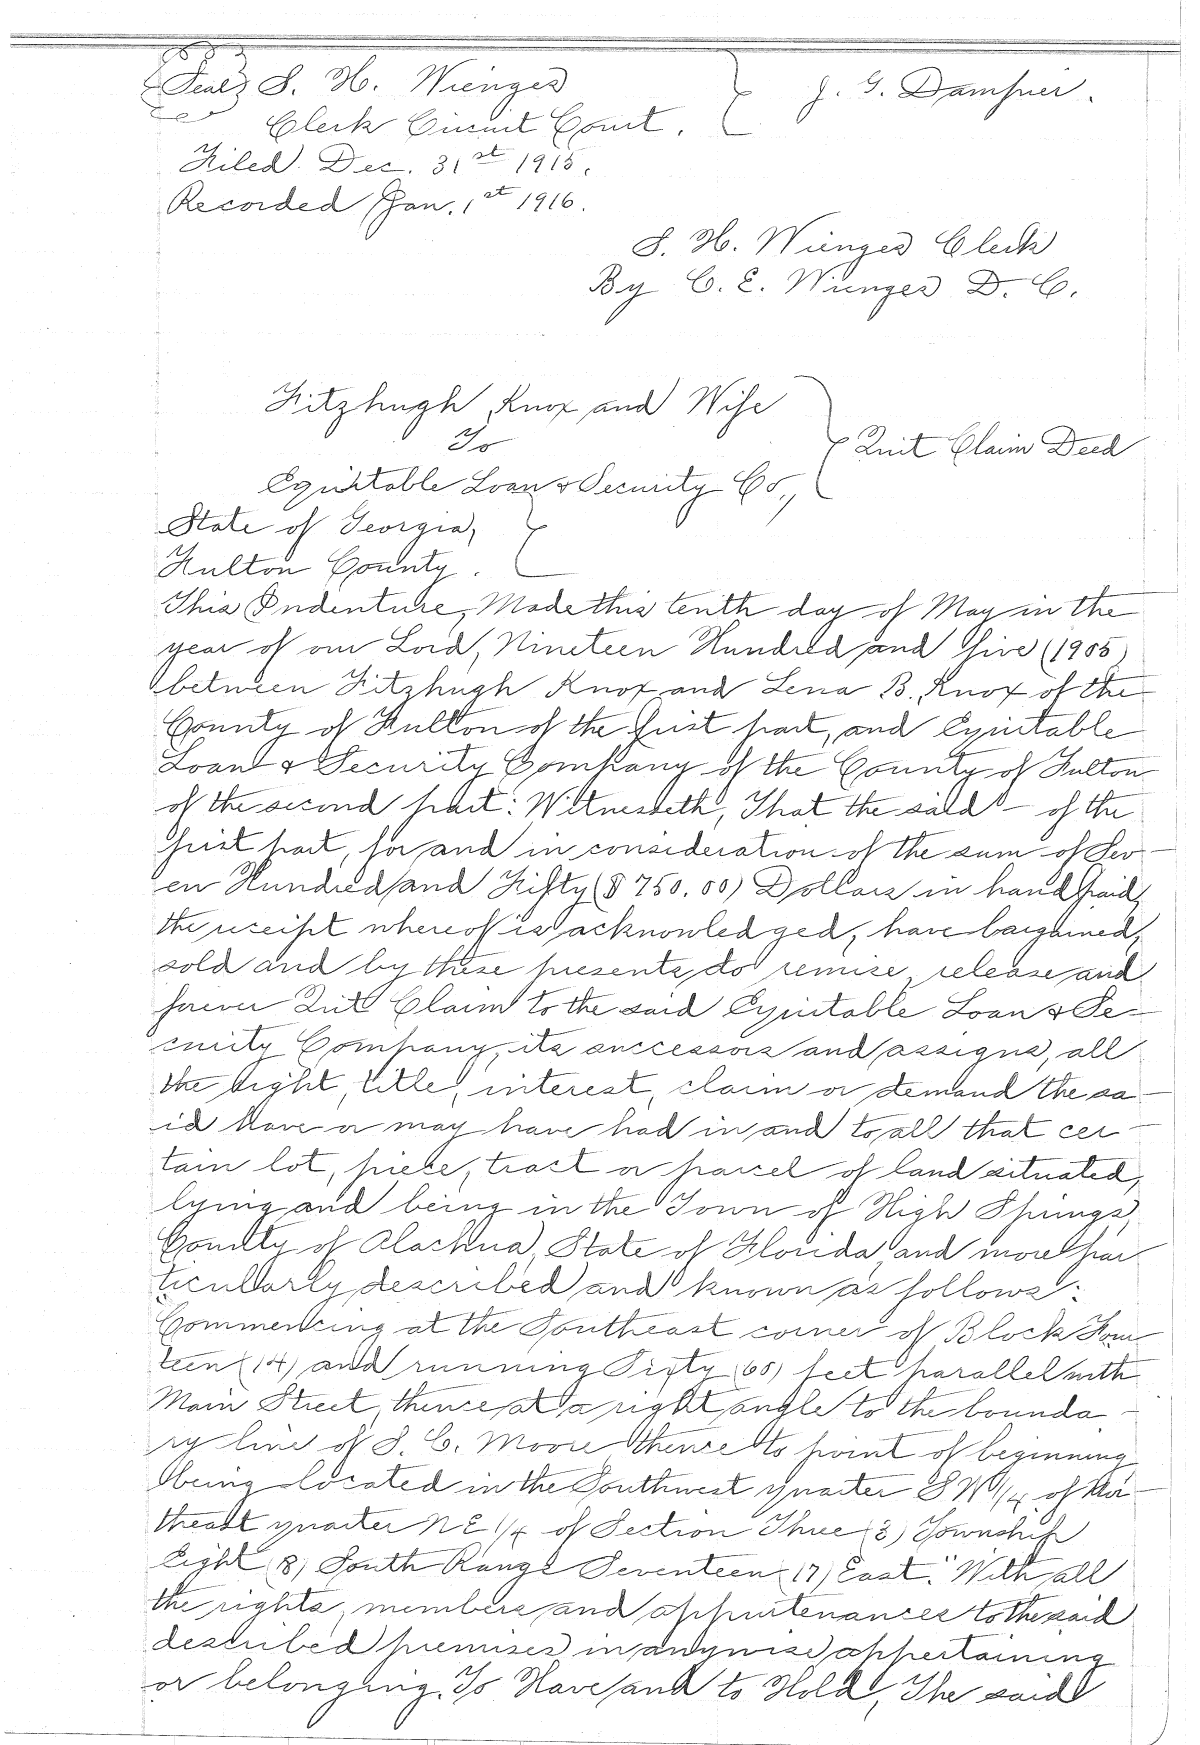 Seal S. H. Wienges J. G. Dampier.
Clerk Circuit Court.
Filed. Dec. 31st 1915.
Recorded Jan. 1st 1916.
S. H. Wienges Clerk
By C. E. Wienges D. C.
Fitzhugh Knox and Wife
To
Quit Claim Deed
Equitable Loan & Security Co.,
State of Georgia,
Fulton County.
This Indenture, Made this tenth day of May in the
year of our Lord, Nineteen Hundred and five (1905)
between Fitzhugh Knox and Lena B. Knox of the
County of Fulton of the first part, and Equitable
Loan & Security Company of the County of Fulton
of the second part: Witnesseth, That the said - of the
first part, for and in consideration of the sum of Sev-
en Hundred and Fifty ($750.00) Dollars in hand paid,
the receipt whereof is acknowledged, have bargained,
sold and by these presents do remise, release and
forever Quit Claim to the said Equitable Loan & Se-
curity Company, its successors and assigns, all
the right, title, interest, claim or demand the sa-
id have or may have had in and to all that cer-
tain lot, piece, tract or parcel of land situated,
lying and being in the Town of High Springs,
County of Alachua, State of Florida, and more par-
ticularly described and known as follows:
"Commencing at the Southeast corner of Block Four-
teen (14) and running Sixty (60) feet parallel with
Main Street, thence at a right angle to the bounda-
ry line of S. C. Moore thence to point of beginning
being located in the Southwest quarter SW 1/4 of Nor-
theast quarter NE 1/4 of Section Three (3) Township
Eight (8) South Range Seventeen (17) East." With all
the rights, members and appurtenances to the said
described premises in anywise appertaining
or belonging. To Have and to Hold, The said